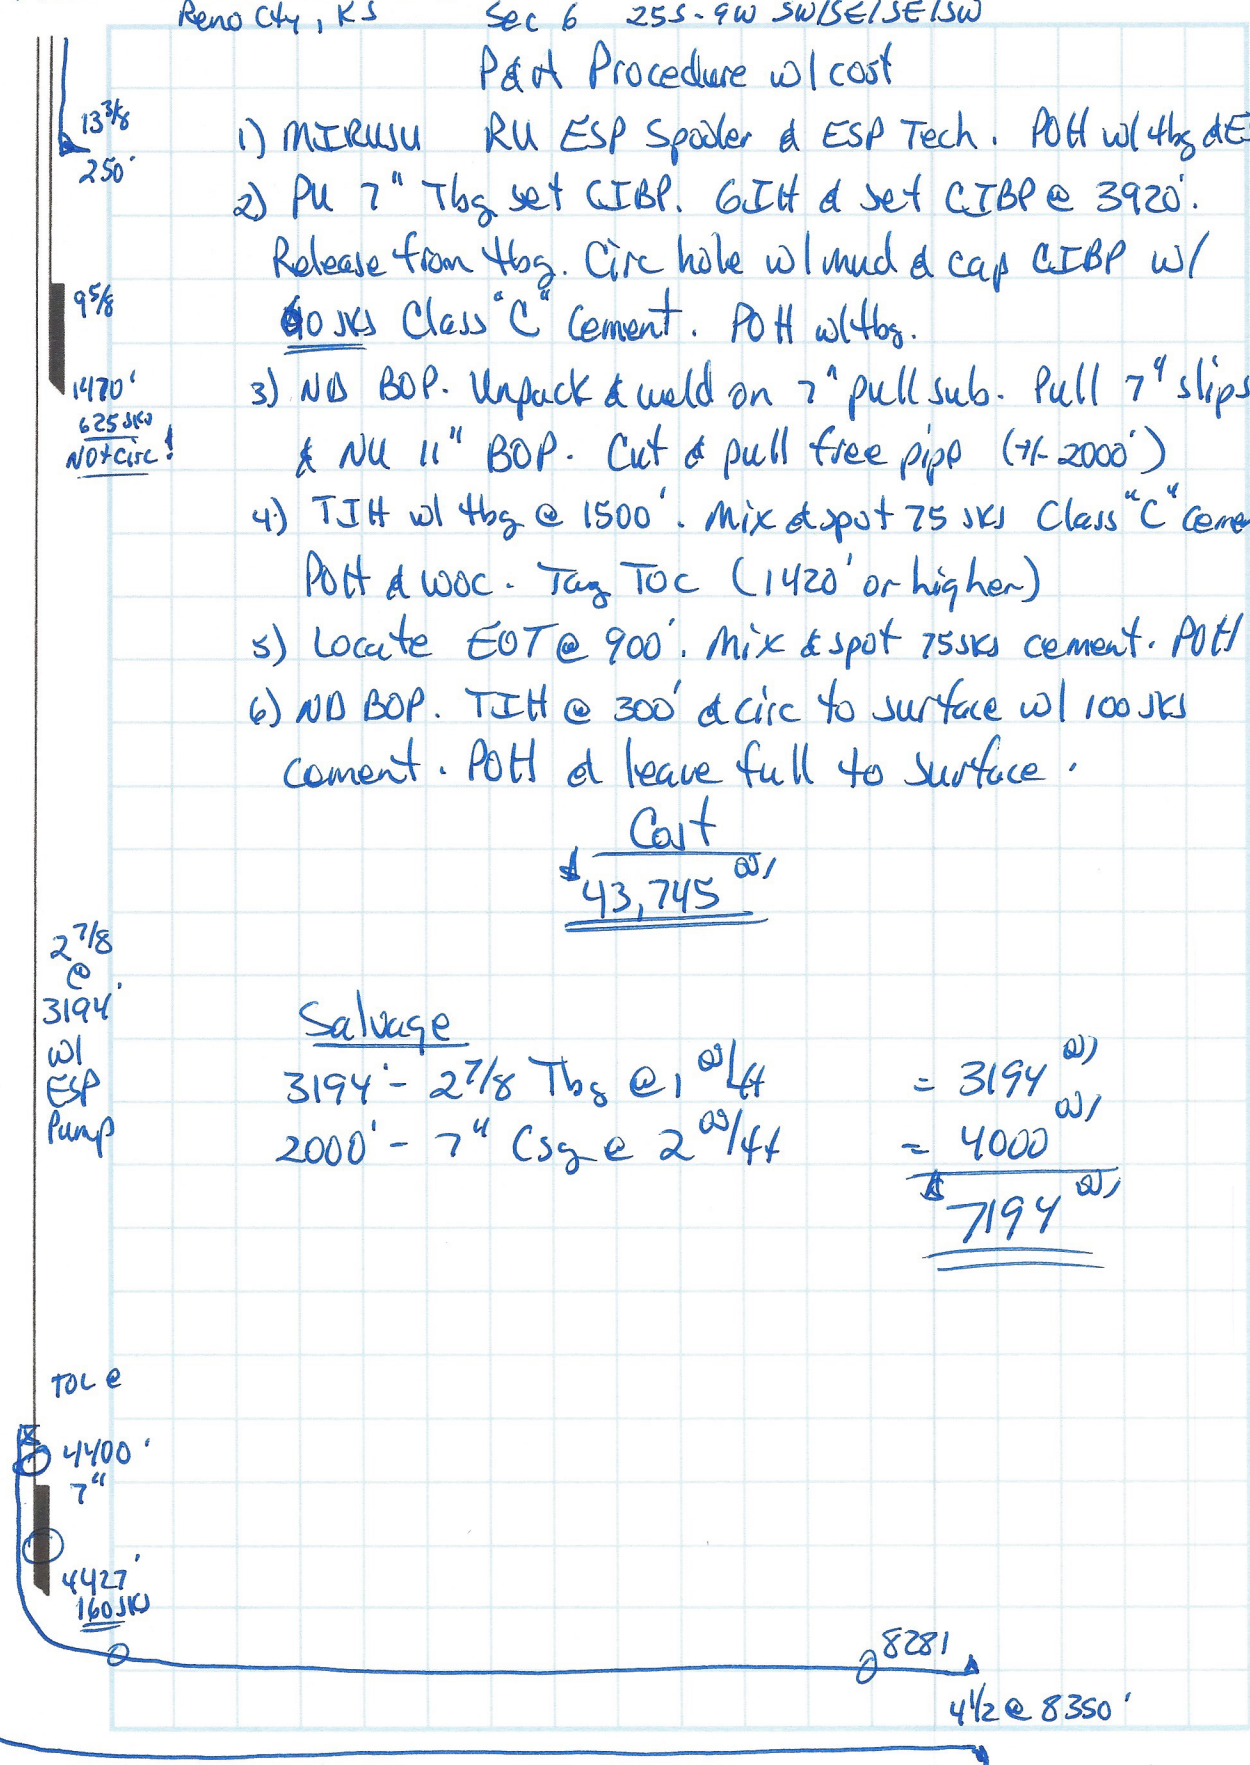 Reno Cty, KS Sec 6 25S-9W SW/SE/SE/SW
P&A Procedure w/cost
13 3/8
250'
1) MIRUSU RU ESP Spooler & ESP Tech. POH w/ tbg & E
2) PU 7" Tbg set CIBP. GIH & set CIBP @ 3920'.
Release from tbg. Circ hole w/ mud & cap CIBP w/
sks Class "C" Cement. POH w/tbg.
9 5/8
1470'
625 sks
Not Circ!
3) ND BOP. Unpack & weld on 7" pull sub. Pull 7" slips
& NU 11" BOP. Cut & pull free pipe (+/- 2000')
4) TIH w/ tbg @ 1500'. Mix & spot 75 sks Class "C" Ceme
POH & WOC. Tag TOC (1420' or higher)
5) Locate EOT @ 900'. Mix & spot 75sks cement. POH
6) ND BOP. TIH @ 300' & circ to surface w/ 100 sks
cement. POH & leave full to surface.
Cost
$43,745 00/
2 7/8
@
3194'
w/
ESP
Pump
Salvage
3194' - 2 7/8 Tbg @ 1 00/ft = 3194 00/
2000' - 7" Csg @ 2 00/ft = 4000 00/
$7194 00/
TOL @
4400'
7"
4427'
160 sks
8281
4 1/2 @ 8350'